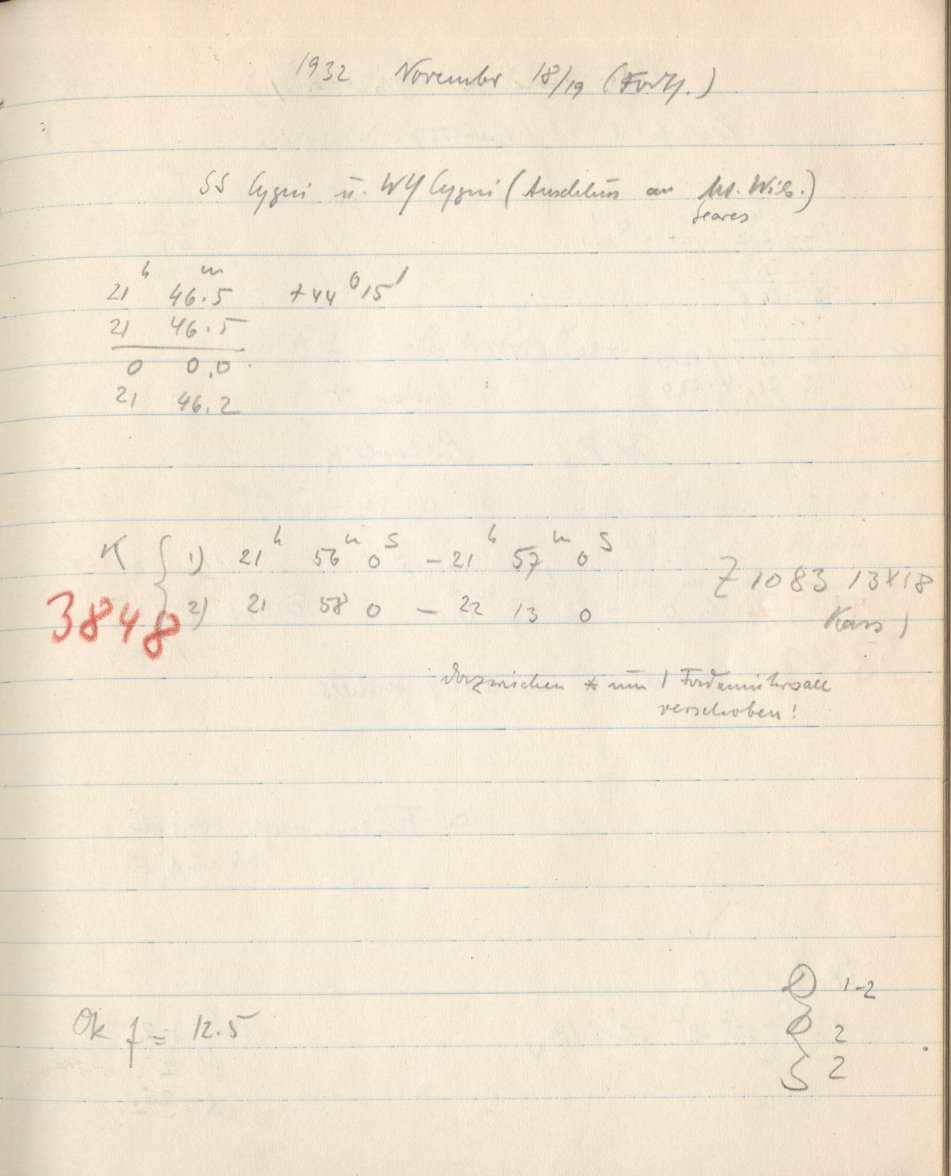 1932 November 18/19 (Forts.)
SS Cygni u. WY Cygni (Anschluss an M. Wils.)
Seares
21 h 46.5 m +44° 15'
21 46.5
0 0.0
21 46.2
K { 1) 21 h 56 m 0 s – 21 h 57 m 0 s
Z 1083 13x18
3848 2) 21 58 0 – 22 13 0
Kass)
dazwischen * um 1
verschoben!
Ok f = 12.5
1-2
2
2